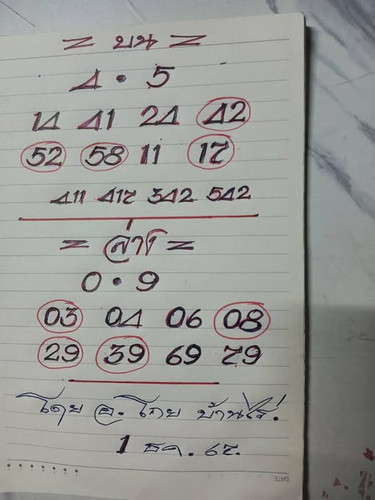 = บน =
4 • 5
14 41 24 42
52 58 11 17
411 417 342 542
= ล่าง =
0 • 9
03 04 06 08
29 39 69 79
โดย อ. ไกย บ้านไร่.
1 ธค. 67.